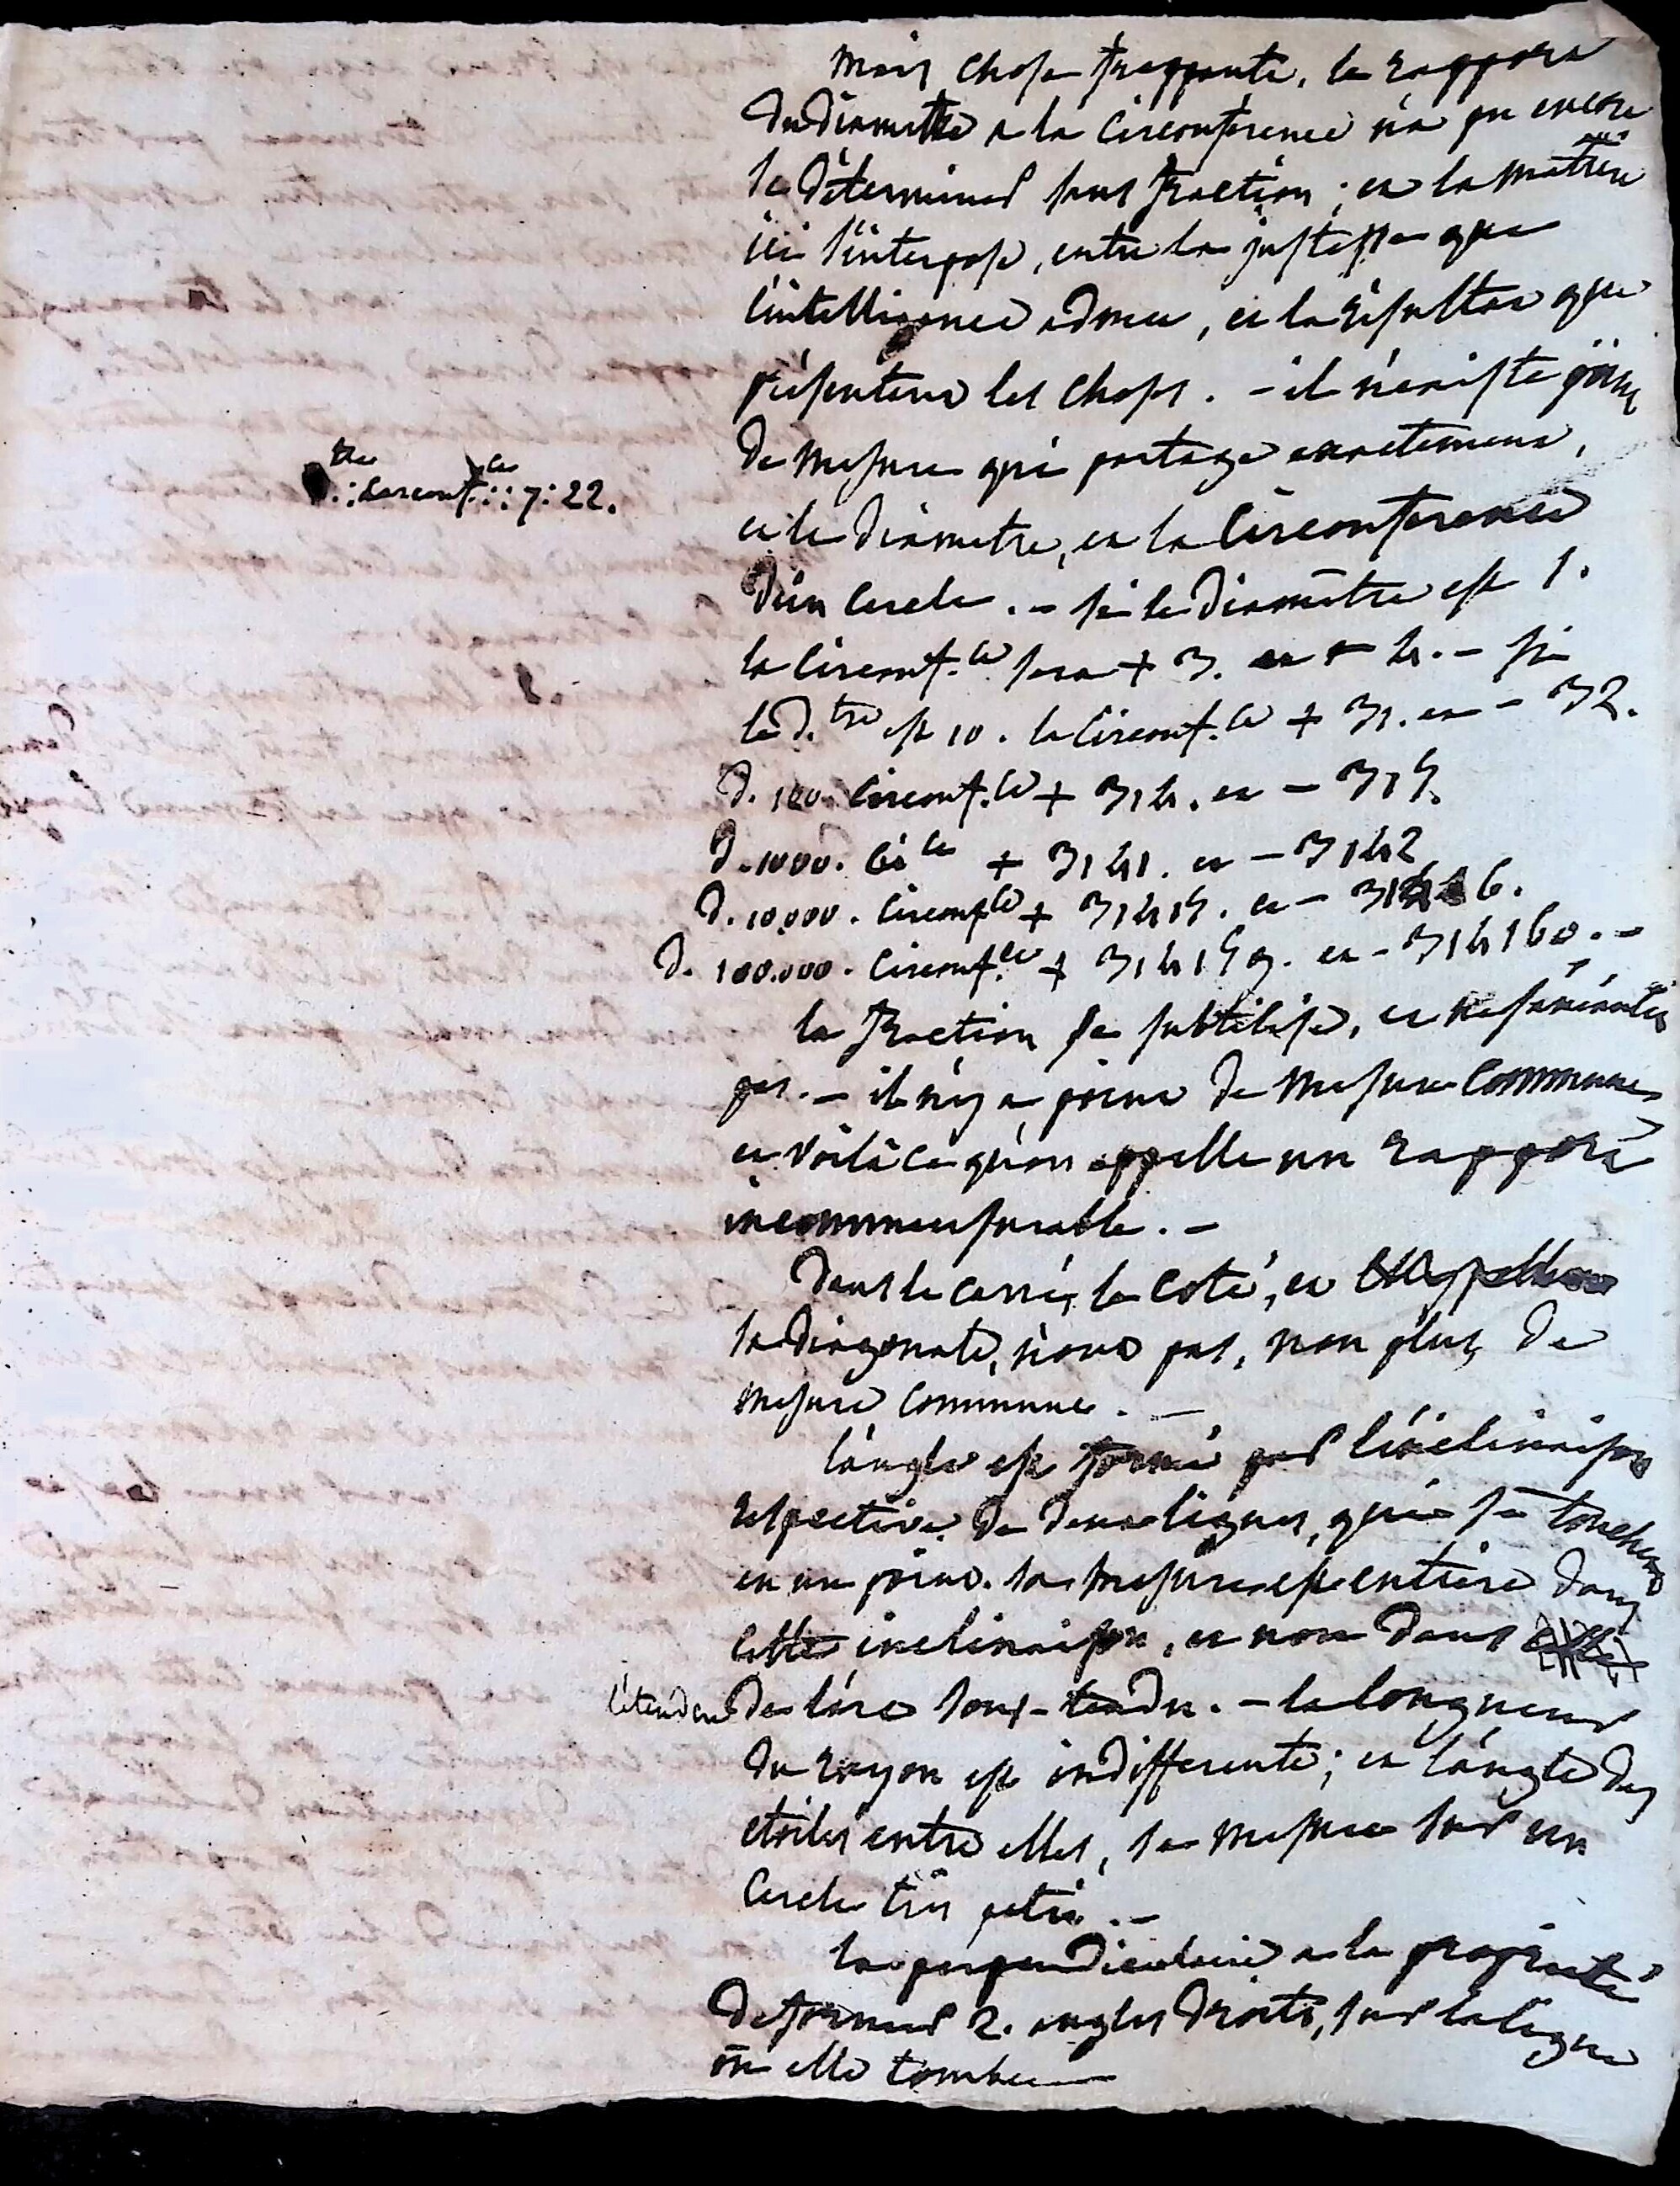 mais chose frappante, le rapport
du diametre a la circonference n'a pu encore
se déterminer sans fraction ; et la matiere
ici s'interpose, entre la justesse que
l'intelligence admet, et le résultat que
présentent les choses. - il n'existe point
de mesure qui partage exactement,
et le diametre, et la circonference
d'un cercle. - si le diamètre est 1.
la circonf.ce sera + 3. et - 4. - si
le d.tre est 10. la circonf.ce + 31. et - 32.
tre ce
D. : circonf. :: 7 : 22.
d. 100. circonf.ce + 314. et - 315.
d. 1000. ci ce + 3141. et - 3142
d. 10,000. circonf.ce + 31415. et - 31416.
d. 100.000. circonf.ce + 314159. et - 314160. -
la fraction se subtilise, et ne s'anéantit
pas. - il n'y a point de mesure commune,
et voilà ce qu'on appelle un rapport
incommensurable. -
Dans le carré, le coté, et
la diagonale, n'ont pas, non plus, de
mesure commune. -
l'angle est formé par l'inclinaison
respective de deux lignes, qui se touchent
en un point. sa mesure est entiere dans
cette inclinaison, et non dans
l'étendue de l'arc sous-tendu. - la longueur
du rayon est indifferente ; et l'angle des
etoiles entre elles, se mesure sur un
cercle très petit. -
la perpendiculaire a la propriété
de former 2. angles droits, sur la ligne
où elle tombe